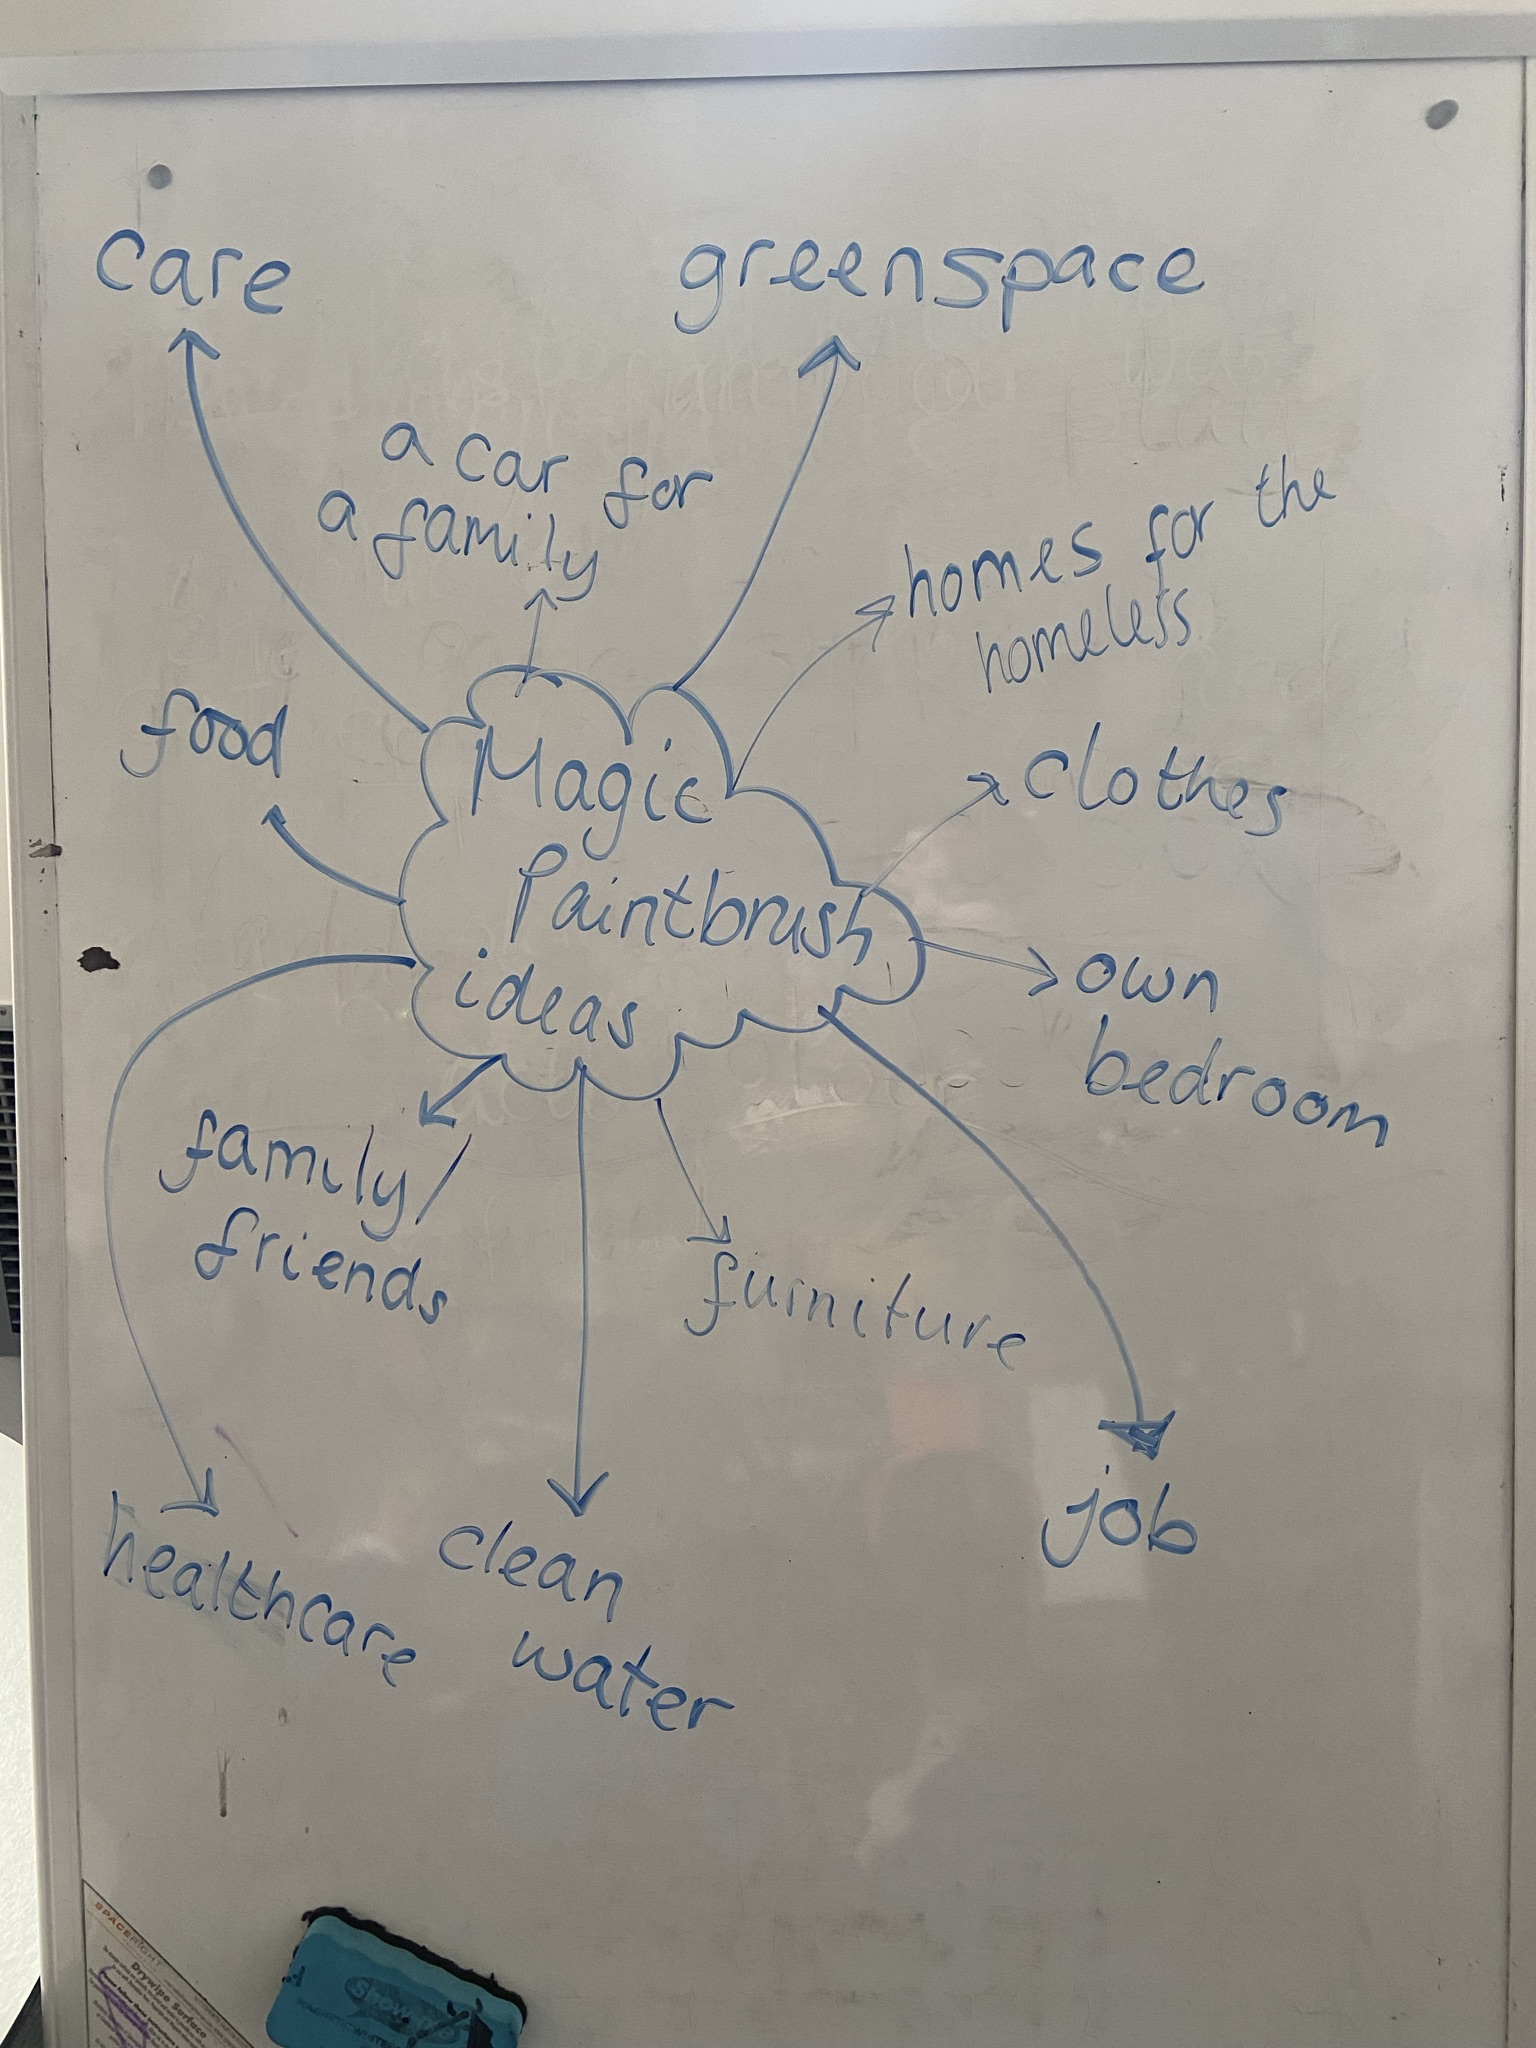 care
greenspace
a car for
a family
homes for the
homeless
food
clothes
Magic
Paintbrush
ideas
own
bedroom
family/
friends
furniture
job
healthcare
clean
water
SPACERIGHT
Drywipe Surface